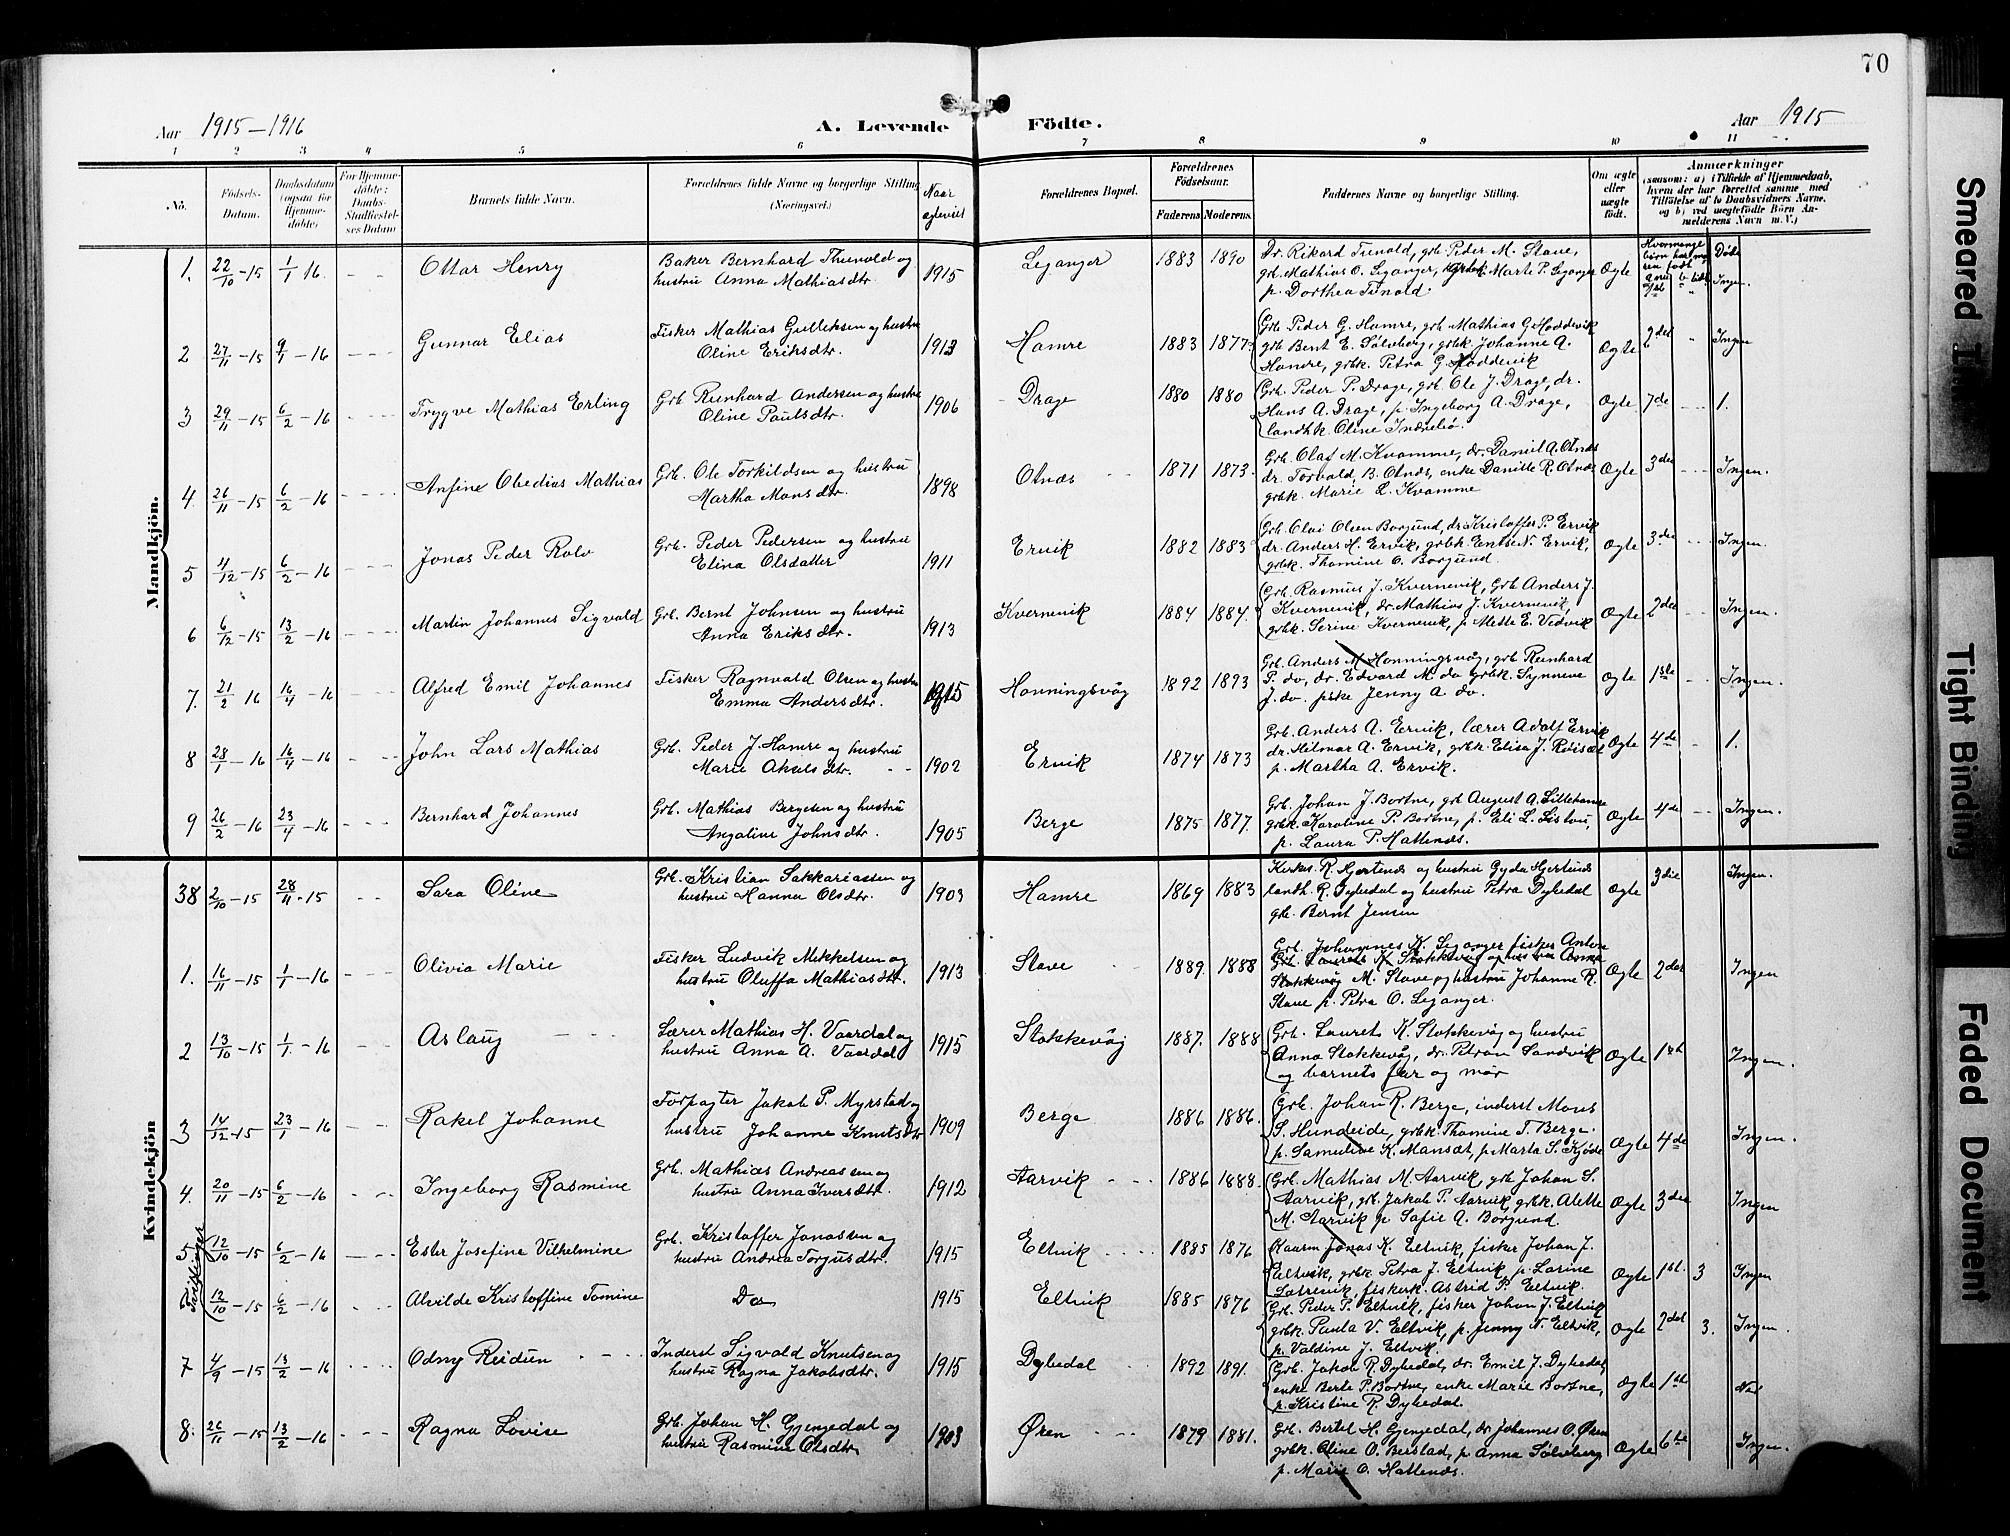 70
Aar 1915-1916
A. Levende Födte.
Aar 1915
1 2 3 4 5 6 7 8 9 10 11
No.
Födsels-Datum.
Daabsdatum (ogsaa for Hjemmedöbte)
For Hjemmedöbte: Daabs-Stadfæstelses Datum
Barnets fulde Navn.
Forældrenes fulde Navne og borgerlige Stilling (Næringsvei.)
Naar egteviet
Forældrenes Bopæl.
Forældrenes Födselsaar.
Faderens. Moderens.
Faddernes Navne og borgerlige Stilling.
Om ægte eller uægte födt.
Anmærkninger
(saasom: a) i Tilfælde af Hjemmedaab,
hvem der har forrettet samme, med
Tilföielse af to Daabsvidners Navne,
og b) ved uægtefödte Börn An-
melderens Navn m. V.)
Mandkjön.
1. 22/10-15 1/1 16. Ottar Henry
Baker Bernhard Thunold og
hustru Anna Mathiasdtr. 1915
Leganger 1883 1890
Dr. Rikard Tunold, grb. Peder M. Stave,
grb. Mathias O. Leganger, grbk. Marte P. Leganger
p. Dorthea Tunold
Ægte Ingen.
2 27/11-15 9/1-16 Gunnar Elias
Fisker Mathias Gulleksen og hustru
Oline Eriksdtr. 1913
Hamre 1883 1877.
Grb. Peder G. Hamre, grb. Mathias G. Hoddevik
grb. Bent E. Sølvberg, grbk. Johanne A.
Hamre, grbk. Petra G. Hoddevik
Ægte 2det Ingen
3 29/11-15 6/2-16 Trygve Mathias Erling
Grb. Reinhard Andersen og hustru
Oline Paulsdtr. 1906
Drage 1880 1880
Grb. Peder P. Drage, grb. Ole J. Drage, dr.
Hans A. Drage, p. Ingeborg A. Drage,
landhk. Oline Indrebø.
Ægte 7de 1.
4 26/11-15 6/2-16 Anfine Obedias Mathias
Grb. Ole Torkildsen og hustru
Martha Monsdtr. 1898
Otnæs 1871 1873.
Grb. Olaf M. Kvamme, dr. Daniel A. Otnæs
dr. Torvald B. Otnæs, enke Danille R. Otnæs
grbk. Marie L. Kvamme
Ægte 3die Ingen.
5 4/12-15 6/2-16 Jonas Peder Rolv
Grb. Peder Pedersen og hustru
Elina Olsdatter 1911
Ervik 1882 1883
Grb. Olai Olsen Borgund, dr. Kristoffer P. Ervik
dr. Anders H. Ervik, grbk. Entse N. Ervik,
grbk. Thomine O. Borgund.
Ægte 3die Ingen.
6 6/12-15 13/2-16 Martin Johannes Sigvald
Grb. Bernt Johnsen og hustru
Anna Eriksdtr. 1913
Kvernevik 1884 1884.
Grb. Rasmus J. Kvernevik, Grb. Anders J.
Kvernevik, dr. Mathias J. Kvernevik,
grbk. Serine Kvernevik, p. Mette E. Vedvik
Ægte 2det Ingen.
7. 21/2 16 16/4-16 Alfred Emil Johannes
Fisker Ragnvald Olsen og hustru
Emma Andersdtr. 1915
Honningsvåg 1892 1893
Grb. Anders M. Honningsvåg, grb. Reinhard
P. do, dr. Edvard M. do grbk. Synneve
J. do. pske Jenny A. do.
Ægte 1ste Ingen.
8 28/1-16 16/4-16 John Lars Mathias
Grb. Peder J. Hamre og hustru
Marie Akselsdtr. 1902
Ervik 1874 1873
Grb. Anders A. Ervik, lærer Adolf Ervik
dr. Hilmar A. Ervik, grbk. Elisa J. Røisæt
p. Martha A. Ervik.
Ægte 4de 1.
9 26/2-16 23/4-16 Bernhard Johannes
Grb. Mathias Bergesen og hustru
Angaline Johnsdtr. 1905
Berge 1875 1877.
Grb. Johan J. Bortne, grb. August A. Sillehamre
grbk. Karoline P. Bortne, p. Eli L. Listou,
p. Laura P. Hattenæs.
Ægte 4de Ingen.
Kvindekjön
38 2/10-15 28/11-15 Sara Oline
Grb. Kristian Sakkariassen og
hustru Hanna Olsdtr. 1903
Hamre 1869 1883
Kirkes. R. Hjertenæs og hustru Gyda Hjertenæs
landh. R. Dybedal og hustru Petra Dybedal
grb. Bernt Jensen
Ægte 3die Ingen.
1. 16/11-15 1/1-16 Olivia Marie
Fisker Ludvik Mikkelsen og
hustru Oluffa Mathiasdtr. 1913
Stave 1889. 1888
Grb. Johannes K. Leganger fisker Anton
Grb. Laurets K. Stokkevåg og hustru Anna
Stokkevåg M. Stave og hustru Johanne R.
Stave p. Petra O. Leganger.
Ægte 2det Ingen
2 13/10-15 1/1-16 Aslaug
Lærer Mathias H. Vaardal og
hustru Anna A. Vaardal 1915
Stokkevåg 1887. 1888
Grb. Laurets K. Stokkevåg og hustru
Anna Stokkevåg, dr. Petran Sandvik
og barnets far og mor
Ægte 1st Ingen.
3 14/12-15 23/1-16 Rakel Johanne
Forpagter Jakob P. Myrstad og
hustru Johanne Knutsdtr 1909
Berge 1886 1886.
Grb. Johan R. Berge, inderst Mons
S. Hundeide, grbk. Thomine T. Berge.
p. Samuline K. Mansæt, p. Marta S. Kjøde
Ægte 4de Ingen.
4. 20/11-15 6/2-16 Ingeborg Rasmine
Grb. Mathias Andreassen og
hustru Anna Iversdtr. 1912
Aarvik 1886 1888.
Grb. Mathias M. Aarvik, grb. Johan S.
Aarvik, grb. Jakob P. Aarvik, grbk. Alette
M. Aarvik p. Sofie A. Borgund.
Ægte 3die Ingen
Tvillinger
5 12/10-15 6/2-16 Ester Josefine Vilhelmine
Grb. Kristoffer Jonassen og
hustru Andrea Torjusdtr. 1915
Eltvik 1885 1876
Kaarm Jonas K. Eltvik, fisker Johan J.
Eltvik, grbk. Petra J. Eltvik, p. Larine
Sætrevik, fiskerk. Astrid P. Eltvik.
Ægte 1st. 3 Ingen
12/10-15 6/2-16 Alvilde Kristoffine Tomine
Do 1915
Eltvik 1885 1876
Grb. Peder P. Eltvik, fisker Johan J. Eltvik
grbk. Paula V. Eltvik, p. Jenny N. Eltvik,
p. Valdine J. Eltvik.
Ægte 2det 3. Ingen.
7 4/9-15 13/2-16 Odny Reidun
Inderst Sigvald Knutsen og
hustru Ragna Jakobsdtr. 1915
Dybedal 1892 1891.
Grb. Jakob R. Dybedal, dr. Emil J. Dybedal,
enke Berte P. Bortne, enke Marie Bortne,
p. Kristine R. Dybedal.
Ægte 1st
8. 26/11-15 13/2-16 Ragna Lovise
Grb. Johan H. Gjengedal og
hustru Rasmine Olsdtr 1903
Øren 1879 1881.
Grb. Bertel H. Gjengedal, dr. Johannes O. Øren
grbk. Oline O. Berstad, p. Anna Sølvberg
p. Marie O. Hattenæs.
Ægte 6te Ingen.
Smeared Ink
Tight Binding
Faded Document